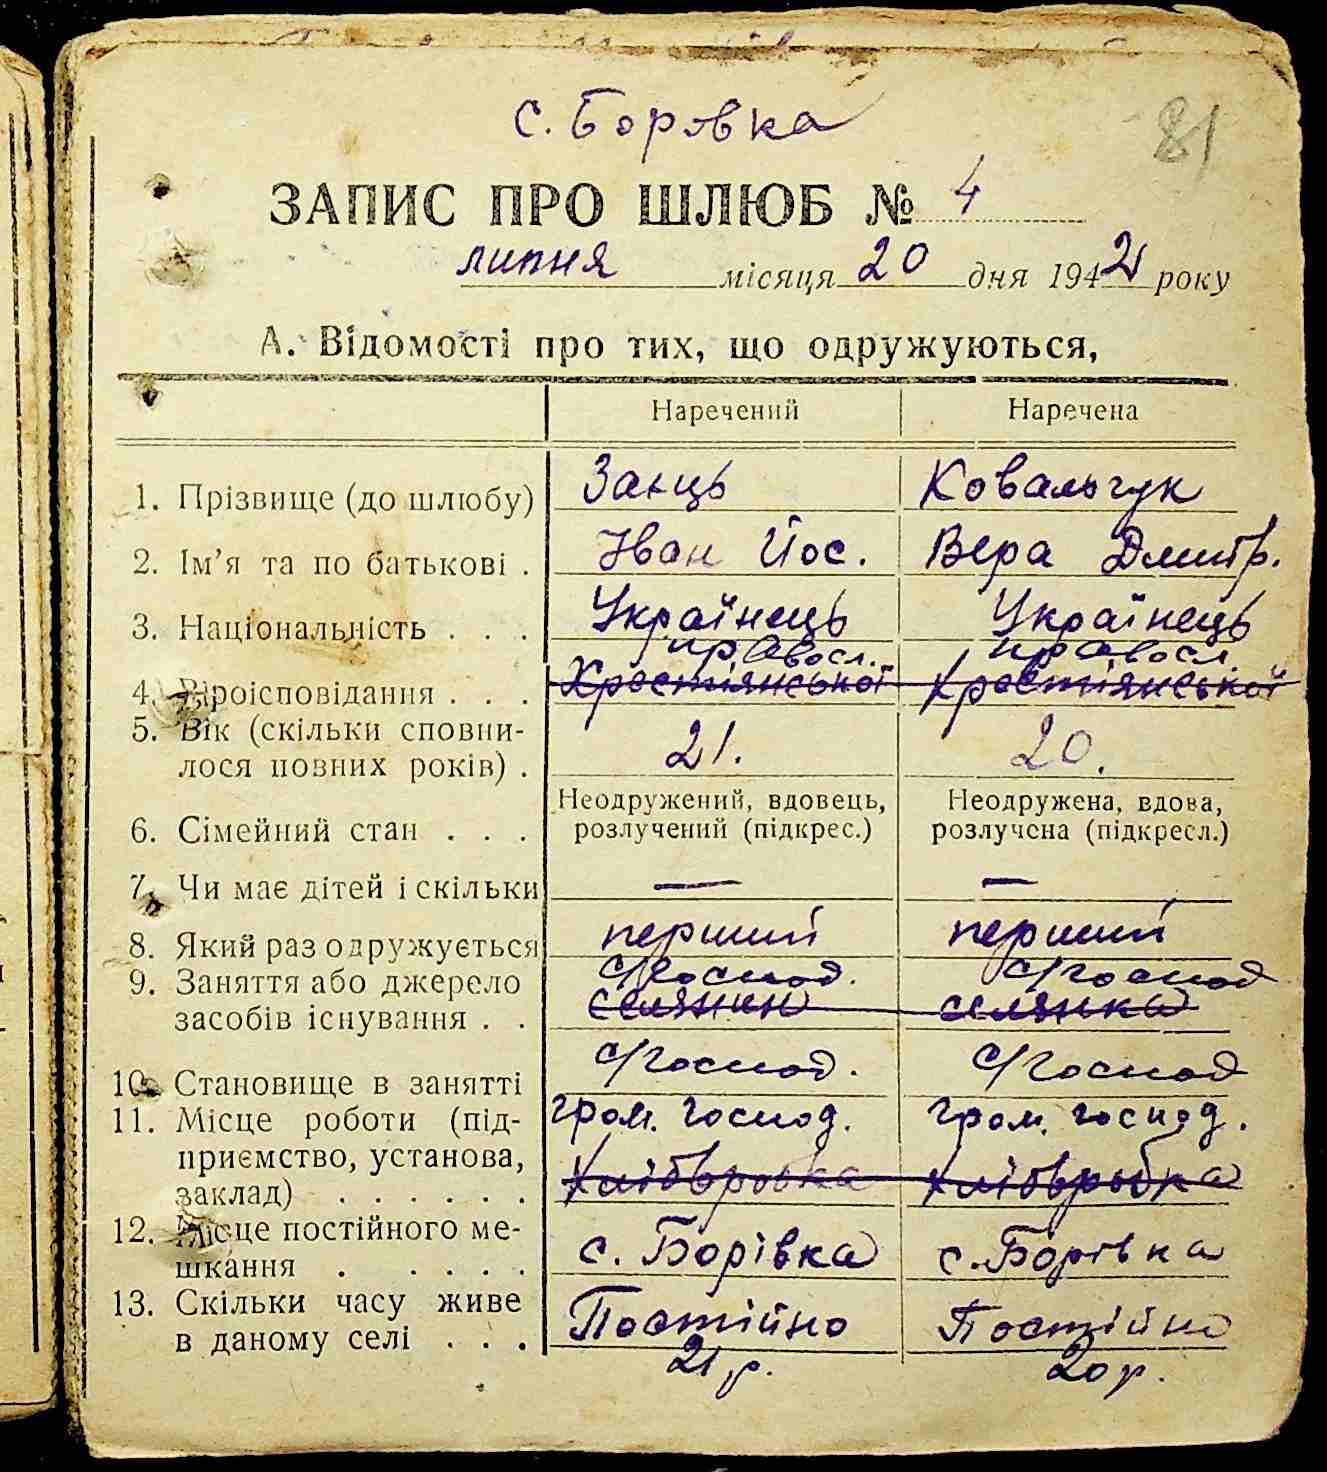 с. Борівка
81
ЗАПИС ПРО ШЛЮБ № 4
липня місяця 20 дня 1942 року
А. Відомості про тих, що одружуються,
Наречений Наречена
1. Прізвище (до шлюбу) Заєць Ковальчук
2. Ім'я та по батькові . Іван Йос. Вера Дмитр.
3. Національність . . . Українець Українець
правосл. правосл.
4. Віроісповідання . . . Хрестіянської Хрестіянської
5. Вік (скільки сповни-
лося повних років) . 21. 20.
Неодружений, вдовець, Неодружена, вдова,
6. Сімейний стан . . . розлучений (підкрес.) розлучена (підкресл.)
7. Чи має дітей і скільки — —
8. Який раз одружується перший перший
9. Заняття або джерело с/господ. с/господ
засобів існування . . селянин селянка
10. Становище в занятті с/господ. с/господ
11. Місце роботи (під- гром. господ. гром. господ.
приємство, установа,
заклад) . . . . . . Хлібо
12. Місце постійного ме-
шкання . . . . . с. Борівка с. Борівка
13. Скільки часу живе
в даному селі . . . Постійно Постійно
21 р. 20 р.